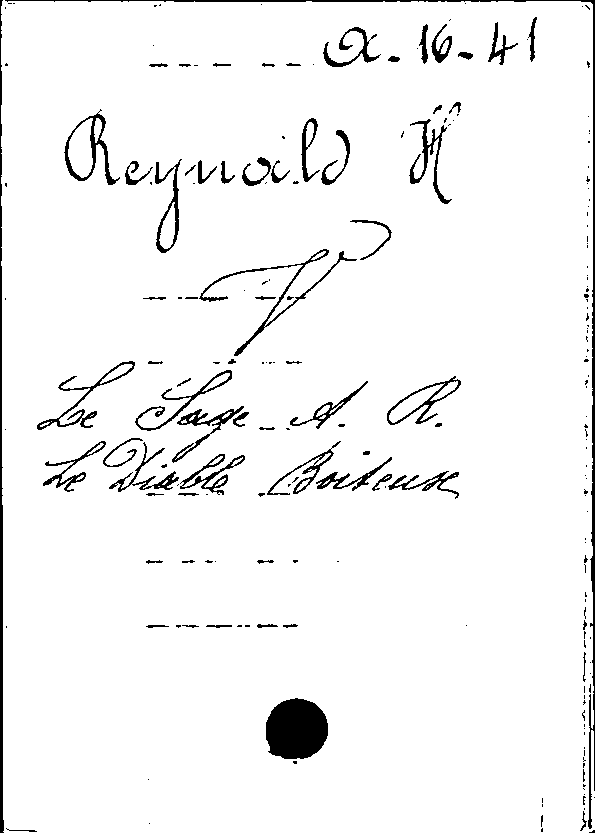 α-16-41
Reynold H
V
Le Sage A. R.
Le Diable Boiteux